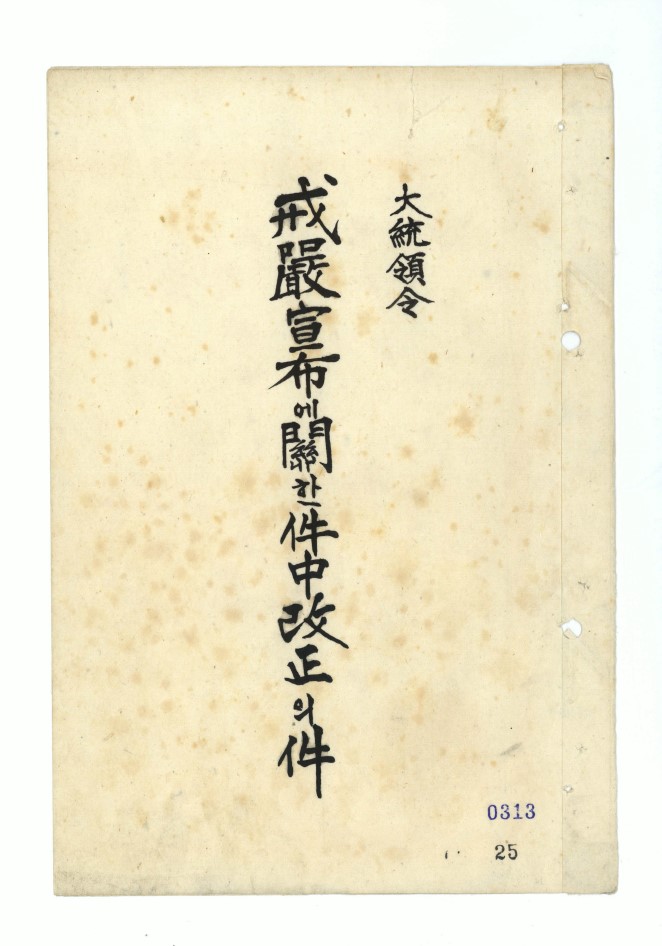 大統領令
戒嚴宣布에關한件中改正의件
0313
25